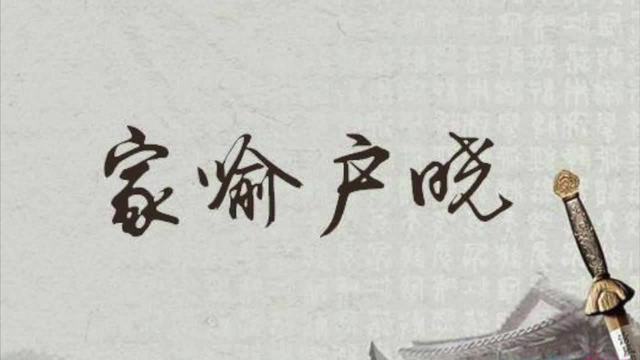 家喻户晓